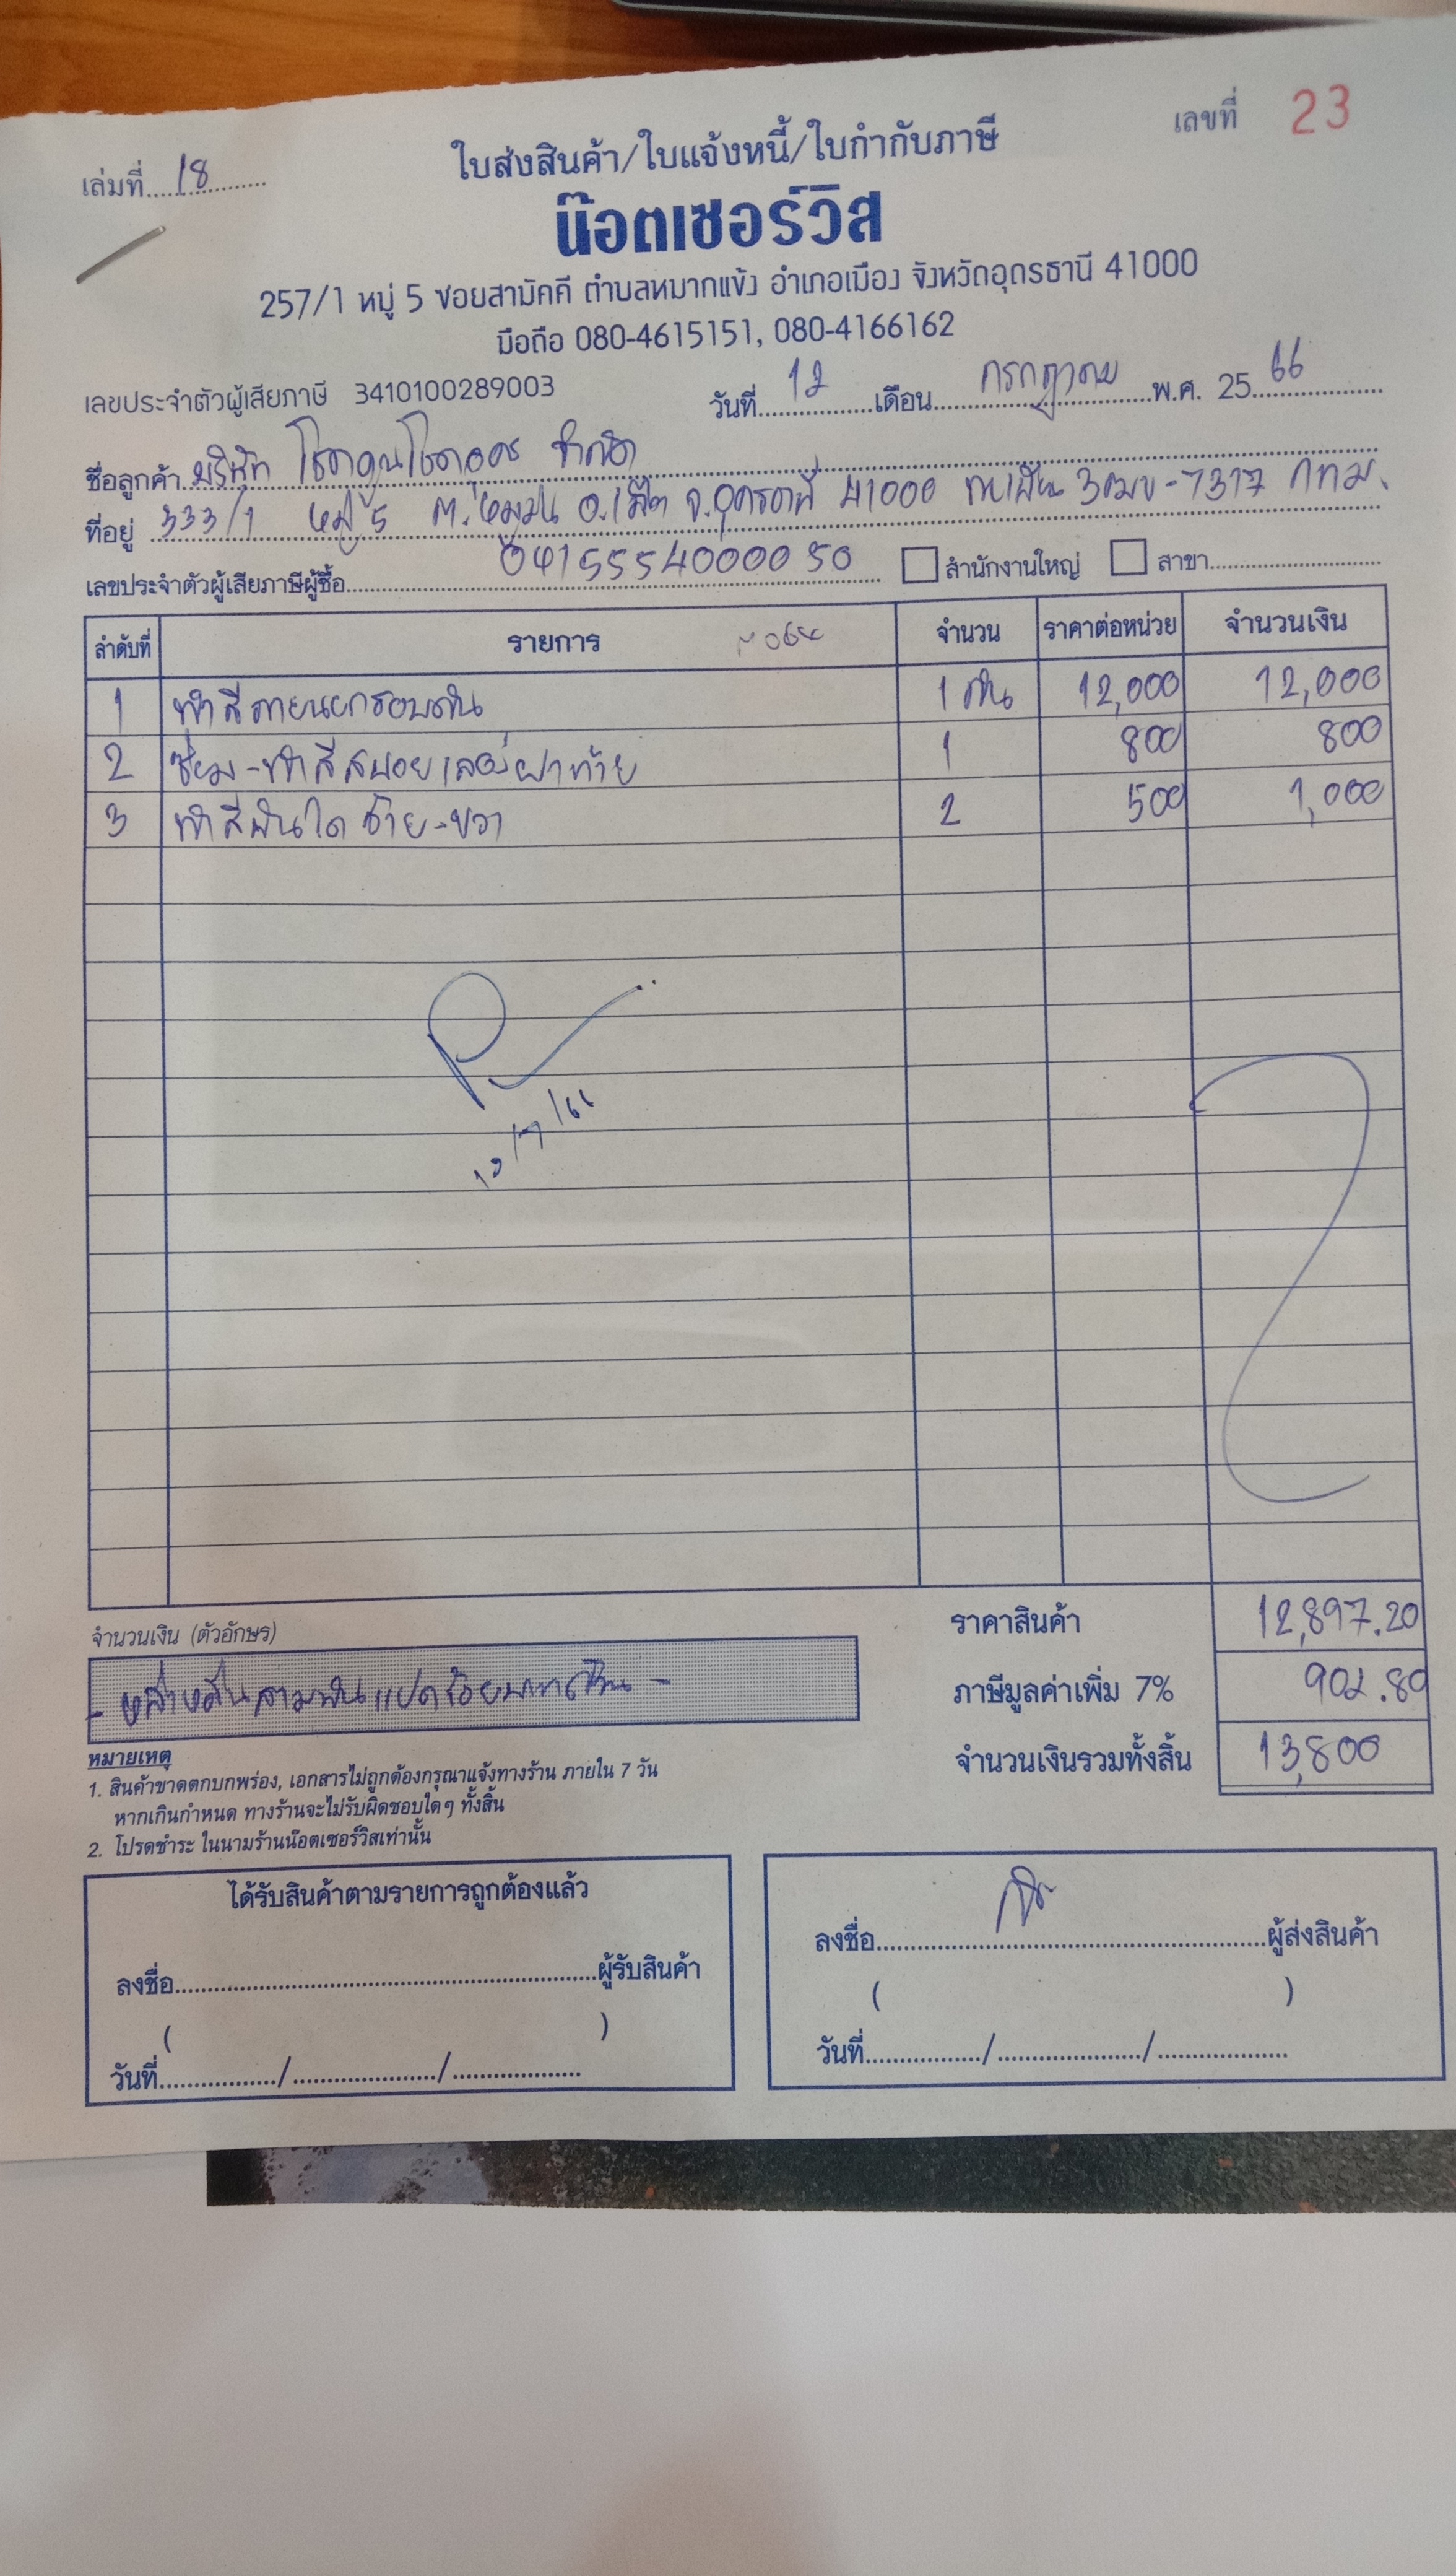 เลขที่ 23
เล่มที่ 18
ใบส่งสินค้า/ใบแจ้งหนี้/ใบกำกับภาษี
น๊อตเซอร์วิส
257/1 หมู่ 5 ซอยสามัคคี ตำบลหมากแข้ง อำเภอเมือง จังหวัดอุดรธานี 41000
มือถือ 080-4615151, 080-4166162
เลขประจำตัวผู้เสียภาษี 3410100289003 วันที่ 12 เดือน กรกฎาคม พ.ศ. 25 66
ชื่อลูกค้า บริษัท โชคคูนโชคอจร จำกัด
ที่อยู่ 333/1 หมู่ 5 ต.หมูม่น อ.เมือง จ.อุดรธานี 41000 ทะเบียน 3ฒข-7317 กทม.
เลขประจำตัวผู้เสียภาษีผู้ซื้อ 0415554000050 สำนักงานใหญ่ สาขา
ลำดับที่ รายการ จำนวน ราคาต่อหน่วย จำนวนเงิน
1 ทำสีภายนอกรอบคัน 1 คัน 12,000 12,000
2 ซ่อม-ทำสี ฝาท้าย 1 800 800
3 ทำสีบันได ซ้าย-ขวา 2 500 1,000
12/7/66
จำนวนเงิน (ตัวอักษร) ราคาสินค้า 12,897.20
- หนึ่งหมื่นสามพันแปดร้อยบาทถ้วน - ภาษีมูลค่าเพิ่ม 7% 902.80
หมายเหตุ จำนวนเงินรวมทั้งสิ้น 13,800
1. สินค้าขาดตกบกพร่อง, เอกสารไม่ถูกต้องกรุณาแจ้งทางร้าน ภายใน 7 วัน
หากเกินกำหนด ทางร้านจะไม่รับผิดชอบใดๆ ทั้งสิ้น
2. โปรดชำระ ในนามร้านน๊อตเซอร์วิสเท่านั้น
ได้รับสินค้าตามรายการถูกต้องแล้ว
ลงชื่อ ผู้รับสินค้า
( )
วันที่ / /
ลงชื่อ ผู้ส่งสินค้า
( )
วันที่ / /